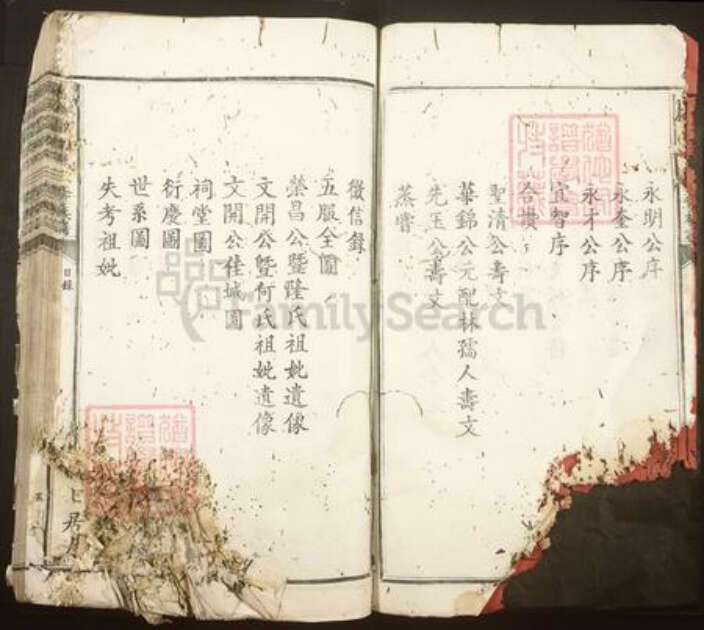 永明公序
永奎公序
永才公序
宜智序
合讃
聖清公壽文
華錦公元配林孺人壽文
先玉公壽文
蒸嘗
徵信錄
五服全圖
榮昌公暨隆氏祖妣遺像
文開公暨何氏祖妣遺像
文開公佳城圖
祠堂圖
衍慶圖
世系圖
失考祖妣
目錄
FamilySearch